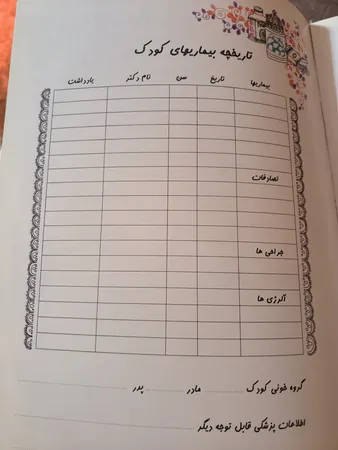 تاریخچه بیماریهای کودک
بیماریها تاریخ سن نام دکتر یادداشت
تصادفات
جراحی ها
آلرژی ها
گروه خونی کودک ............ مادر ............ پدر ............
اطلاعات پزشکی قابل توجه دیگر ............